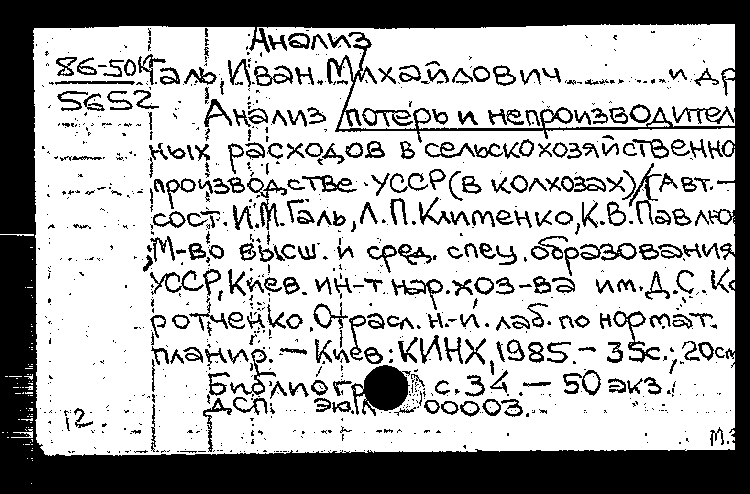 Анализ
86-50к Галь, Иван Михайлович и др
5652
Анализ потерь и непроизводител
ных расходов в сельскохозяйственно
производстве УССР (в колхозах)/[Авт.-
сост. И.М. Галь, Л.П. Клименко, К.В. Павлю
М-во высш. и сред. спец. образования
УССР, Киев. ин-т нар. хоз-ва им. Д.С. Ко
ротченко. Отрасл. н.-и. лаб. по нормат.
планир. — Киев: КИНХ, 1985. — 35с.; 20см
Библиогр с. 34. — 50 экз.
ДСП. 00003.
12.